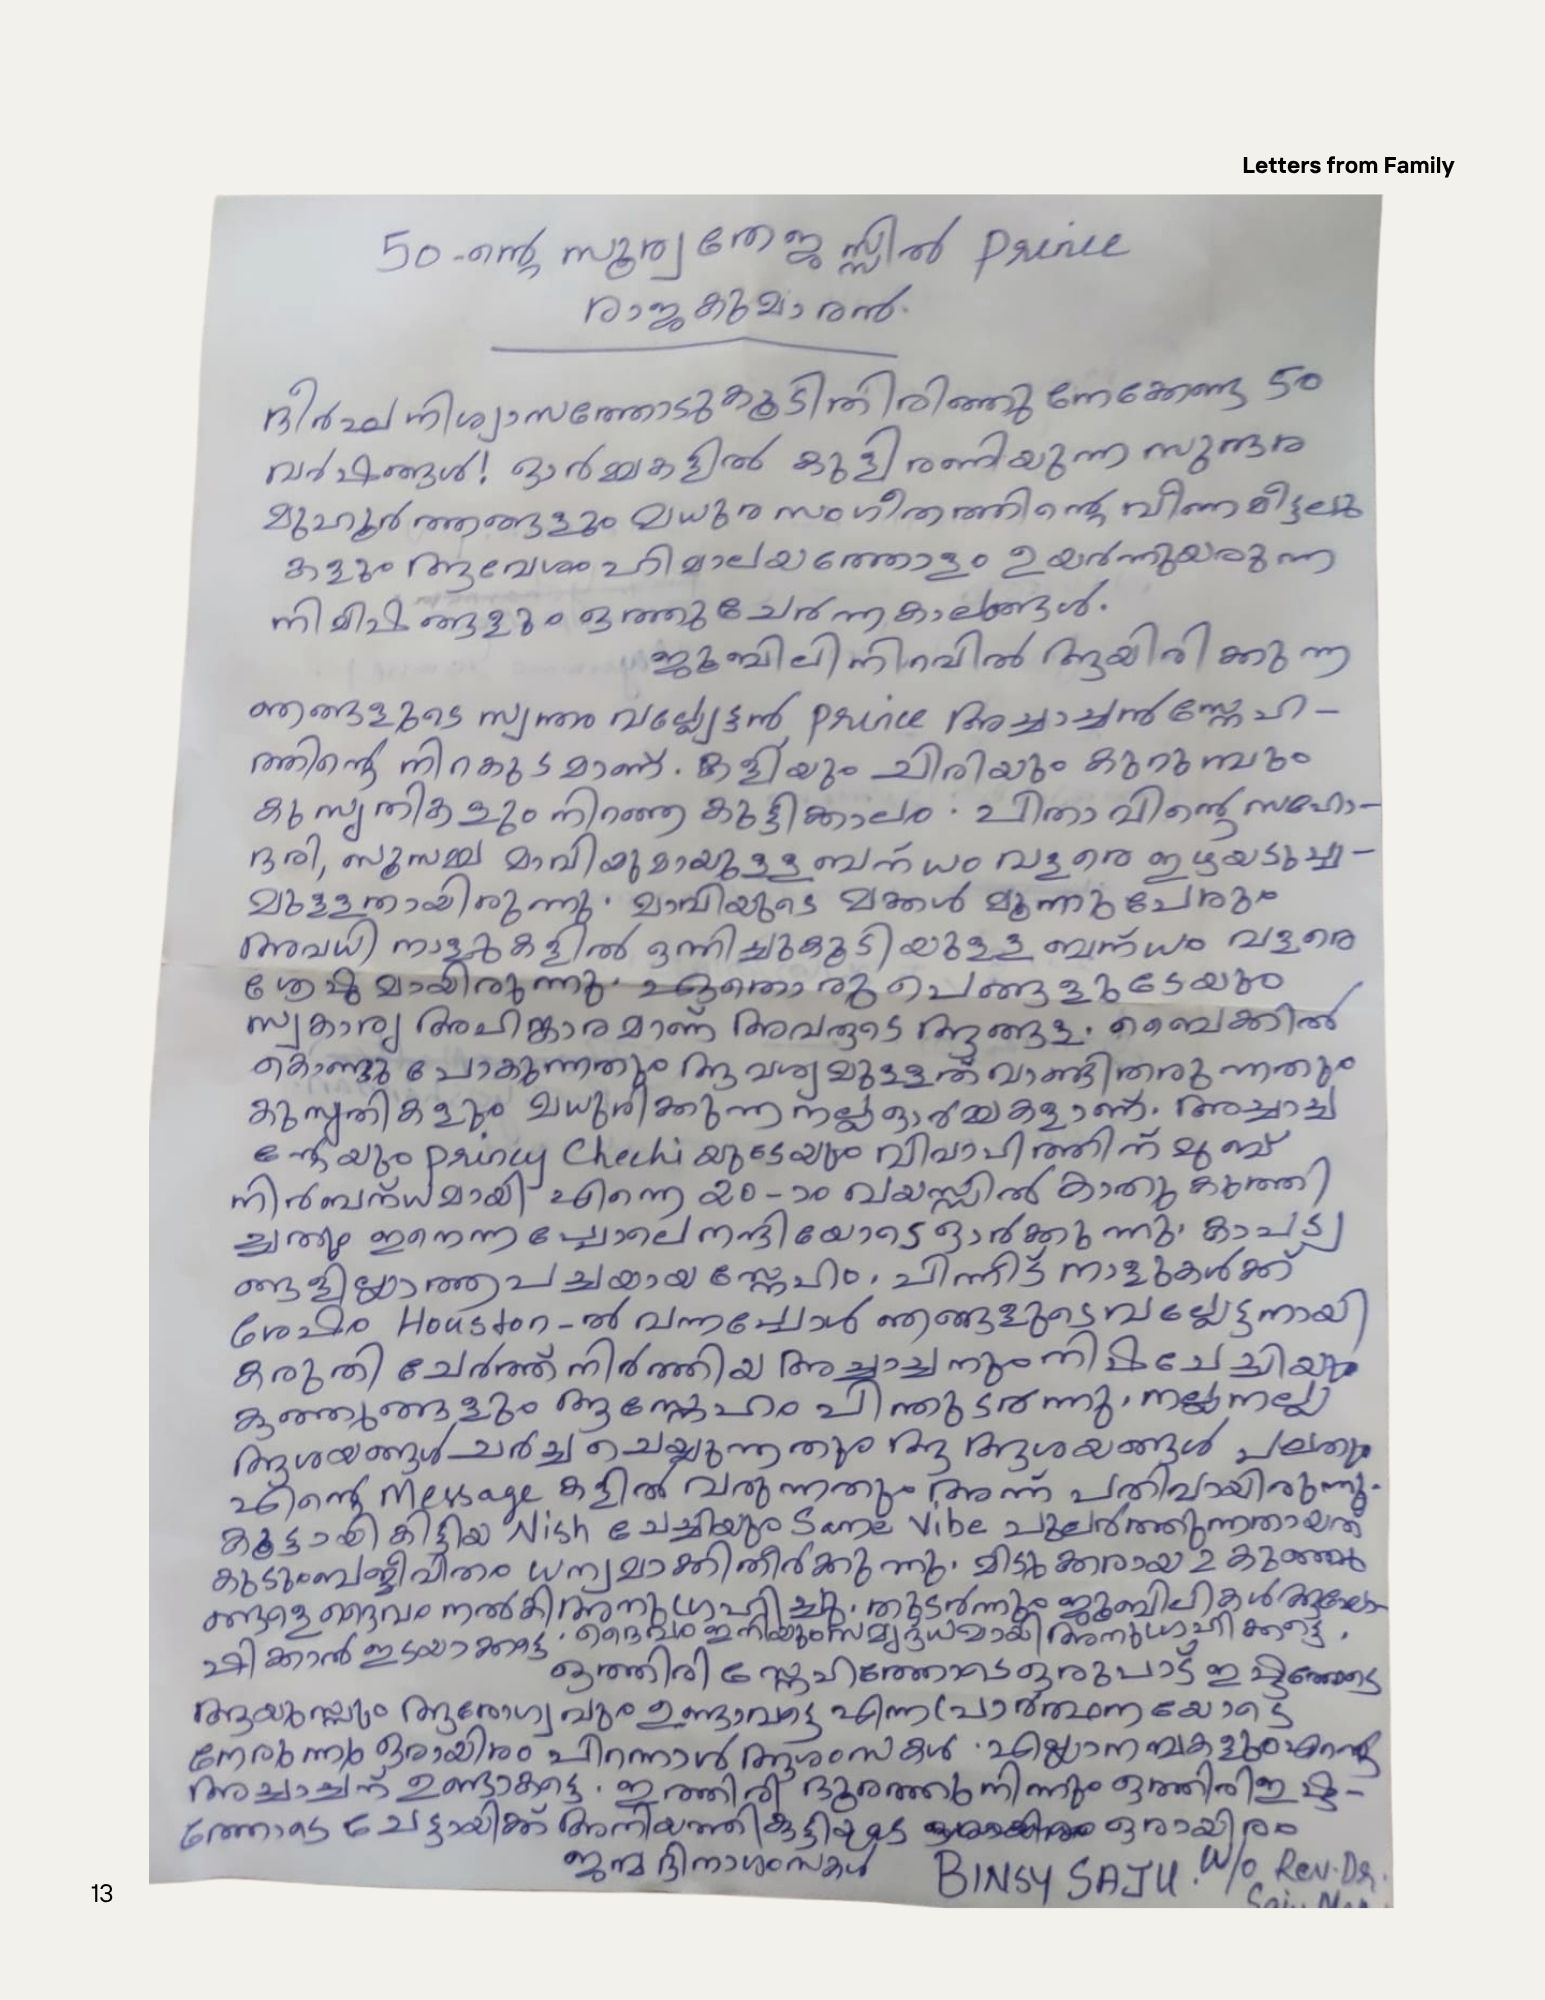 Letters from Family
50-ന്റെ സൂര്യതേജസ്സിൽ Prince
രാജകുമാരൻ.
ദീർഘനിശ്വാസത്തോടുകൂടി തിരിഞ്ഞു നോക്കേണ്ട 50
വർഷങ്ങൾ! ഓർമ്മകളിൽ കുളിരണിയുന്ന സുന്ദര
മുഹൂർത്തങ്ങളും മധുര സംഗീതത്തിന്റെ വീണമീട്ടലു
കളും ആവേശം ഹിമാലയത്തോളം ഉയർന്നുയരുന്ന
നിമിഷങ്ങളും ഒത്തുചേർന്ന കാലങ്ങൾ.
ജൂബിലി നിറവിൽ ആയിരിക്കുന്ന
ഞങ്ങളുടെ സ്വന്തം വല്ല്യേട്ടൻ Prince അച്ചാച്ചൻ സ്നേഹ-
ത്തിന്റെ നിറകുടമാണ്. കളിയും ചിരിയും കുറുമ്പും
കുസൃതികളും നിറഞ്ഞ കുട്ടിക്കാലം. പിതാവിന്റെ സഹോ-
ദരി, സൂസമ്മ മാമിയുമായുള്ള ബന്ധം വളരെ ഇഴയടുപ്പ-
മുള്ളതായിരുന്നു. മാമിയുടെ മക്കൾ മൂന്നുപേരും
അവധി നാളുകളിൽ ഒന്നിച്ചുകൂടിയുള്ള ബന്ധം വളരെ
ശ്രേഷ്ഠമായിരുന്നു. ഏതൊരു പെങ്ങളുടേയും
സ്വകാര്യ അഹങ്കാരമാണ് അവരുടെ ആങ്ങള. ബൈക്കിൽ
കൊണ്ടു പോകുന്നതും ആവശ്യമുള്ളത് വാങ്ങിതരുന്നതും
കുസൃതികളും മധുരിക്കുന്ന നല്ല ഓർമ്മകളാണ്. അച്ചാച്ച
ന്റേയും Princy Chechi യുടേയും വിവാഹത്തിന് മുമ്പ്
നിർബന്ധമായി എന്നെ 20-ാo വയസ്സിൽ കാതു കുത്തി
ച്ചതും ഇന്നെന്ന പ്പോലെ നന്ദിയോടെ ഓർക്കുന്നു. കാപട്യ
ങ്ങളില്ലാത്ത പച്ചയായ സ്നേഹം. പിന്നീട് നാളുകൾക്ക്
ശേഷം Houston-ൽ വന്നപ്പോൾ ഞങ്ങളുടെ വല്ല്യേട്ടനായി
കരുതി ചേർത്ത് നിർത്തിയ അച്ചാച്ചനും നിഷ ചേച്ചിയും
കുഞ്ഞുങ്ങളും ആ സ്നേഹം പിന്തുടരുന്നു. നല്ല നല്ല
ആശയങ്ങൾ ചർച്ച ചെയ്യുന്നതും ആ ആശയങ്ങൾ പലതും
എന്റെ Message കളിൽ വരുന്നതും അന്ന് പതിവായിരുന്നു.
കൂട്ടായി കിട്ടിയ Nish ചേച്ചിയും Same Vibe പുലർത്തുന്നതായത്
കുടുംബജീവിതം ധന്യമാക്കി തീർക്കുന്നു. മിടുക്കരായ 2 കുഞ്ഞു
ങ്ങളെ ദൈവം നൽകി അനുഗ്രഹിച്ചു. തുടർന്നും ജൂബിലികൾ ആഘോ-
ഷിക്കാൻ ഇടയാക്കട്ടെ. ദൈവം ഇനിയും സമൃദ്ധമായി അനുഗ്രഹിക്കട്ടെ.
ഒത്തിരി സ്നേഹത്തോടെ ഒരുപാട് ഇഷ്ടത്തോടെ
ആയുസ്സും ആരോഗ്യവും ഉണ്ടാവട്ടെ എന്ന പ്രാർത്ഥനയോടെ
നേരുന്നു ഒരായിരം പിറന്നാൾ ആശംസകൾ. എല്ലാ നന്മകളും എന്റെ
അച്ചാച്ചന് ഉണ്ടാകട്ടെ. ഇത്തിരി ദൂരത്തു നിന്നും ഒത്തിരി ഇഷ്ട-
ത്തോടെ ചേട്ടായിക്ക് അനിയത്തികുട്ടിയുടെ ഒരായിരം
ജന്മദിനാശംസകൾ BINSY SAJU. W/o Rev. Dr.
13